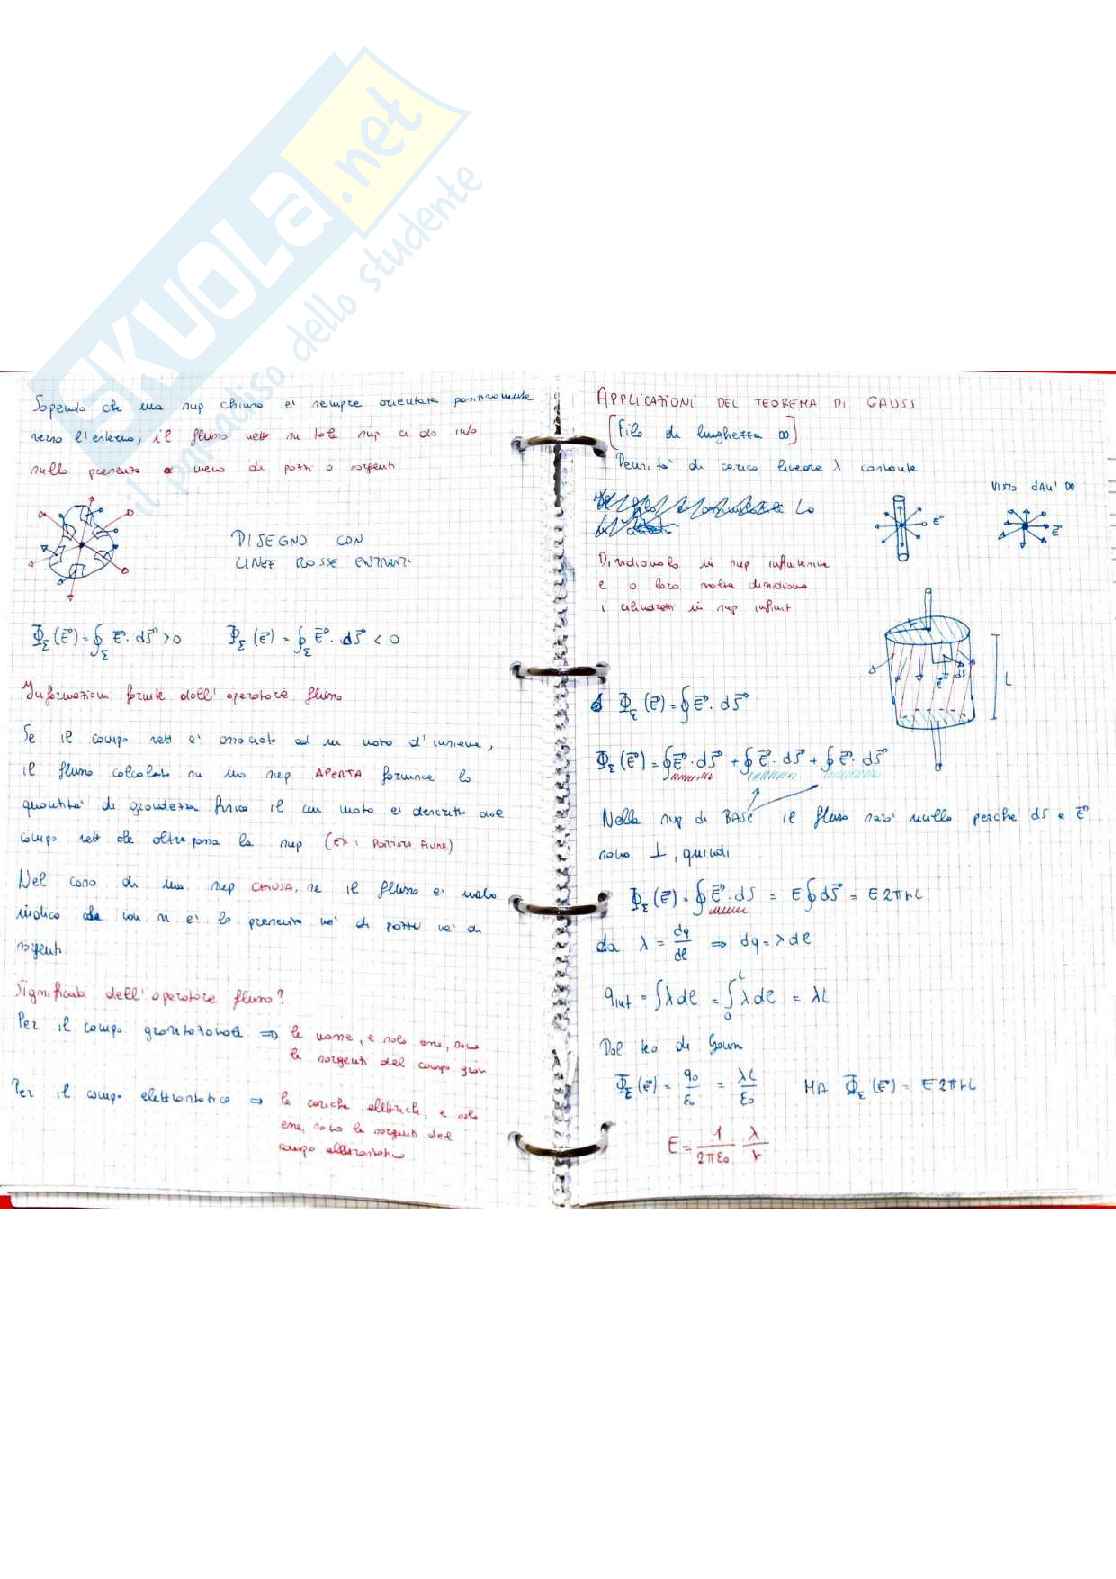 SKUOLA.net
il paradiso dello studente
Sapendo che una sup chiusa è sempre orientata positivamente
verso l'esterno, il flusso nett su tale sup ci da info
sulla presenza o meno di pozzi o sorgenti
DISEGNO CON
LINEE ROSSE ENTRANTI
Φ_Σ(E⃗) = ∮_Σ E⃗ · dS⃗ > 0    Φ_Σ(E⃗) = ∮_Σ E⃗ · dS⃗ < 0
Informazioni fornite dall'operatore flusso
Se il campo vett è associato ad un moto d'insieme,
il flusso calcolato su una sup APERTA fornisce la
quantità di grandezza fisica il cui moto è descritto dal
campo vett che oltrepassa la sup (es: PORTATA FIUME)
Nel caso di una sup CHIUSA, se il flusso è nullo
indica che non vi è la presenza né di pozzi né di
sorgenti.
Significato dell'operatore flusso?
Per il campo gravitazionale ⇒ le masse, e solo esse, sono
le sorgenti del campo grav
Per il campo elettrostatico ⇒ le cariche elettriche, e solo
esse, sono le sorgenti del
campo elettrostatico
APPLICAZIONI DEL TEOREMA DI GAUSS
[Filo di lunghezza ∞]
Densità di carica lineare λ costante
VISTO DALL' ∞
E⃗
E⃗
Dividiamolo in sup infinitesime
e a loro volta dividiamo
i cilindretti in sup infinit
r
E⃗ dS⃗
L
Φ_Σ(E⃗) = ∮ E⃗ · dS⃗
Φ_Σ(E⃗) = ∮ E⃗ · dS⃗ + ∮ E⃗ · dS⃗ + ∮ E⃗ · dS⃗
Nella sup di BASE il flusso sarà nullo perché dS e E⃗
sono ⊥, quindi
Φ_Σ(E⃗) = ∮ E⃗ · dS = E ∮ dS⃗ = E 2πrL
da λ = dq/dl ⇒ dq = λ dl
q_int = ∫ λ dl = ∫₀ᴸ λ dl = λL
Dal teo di Gauss
Φ_Σ(E⃗) = q₀/ε₀ = λL/ε₀    MA Φ_Σ(E⃗) = E 2πrL
E = 1/2πε₀ λ/r